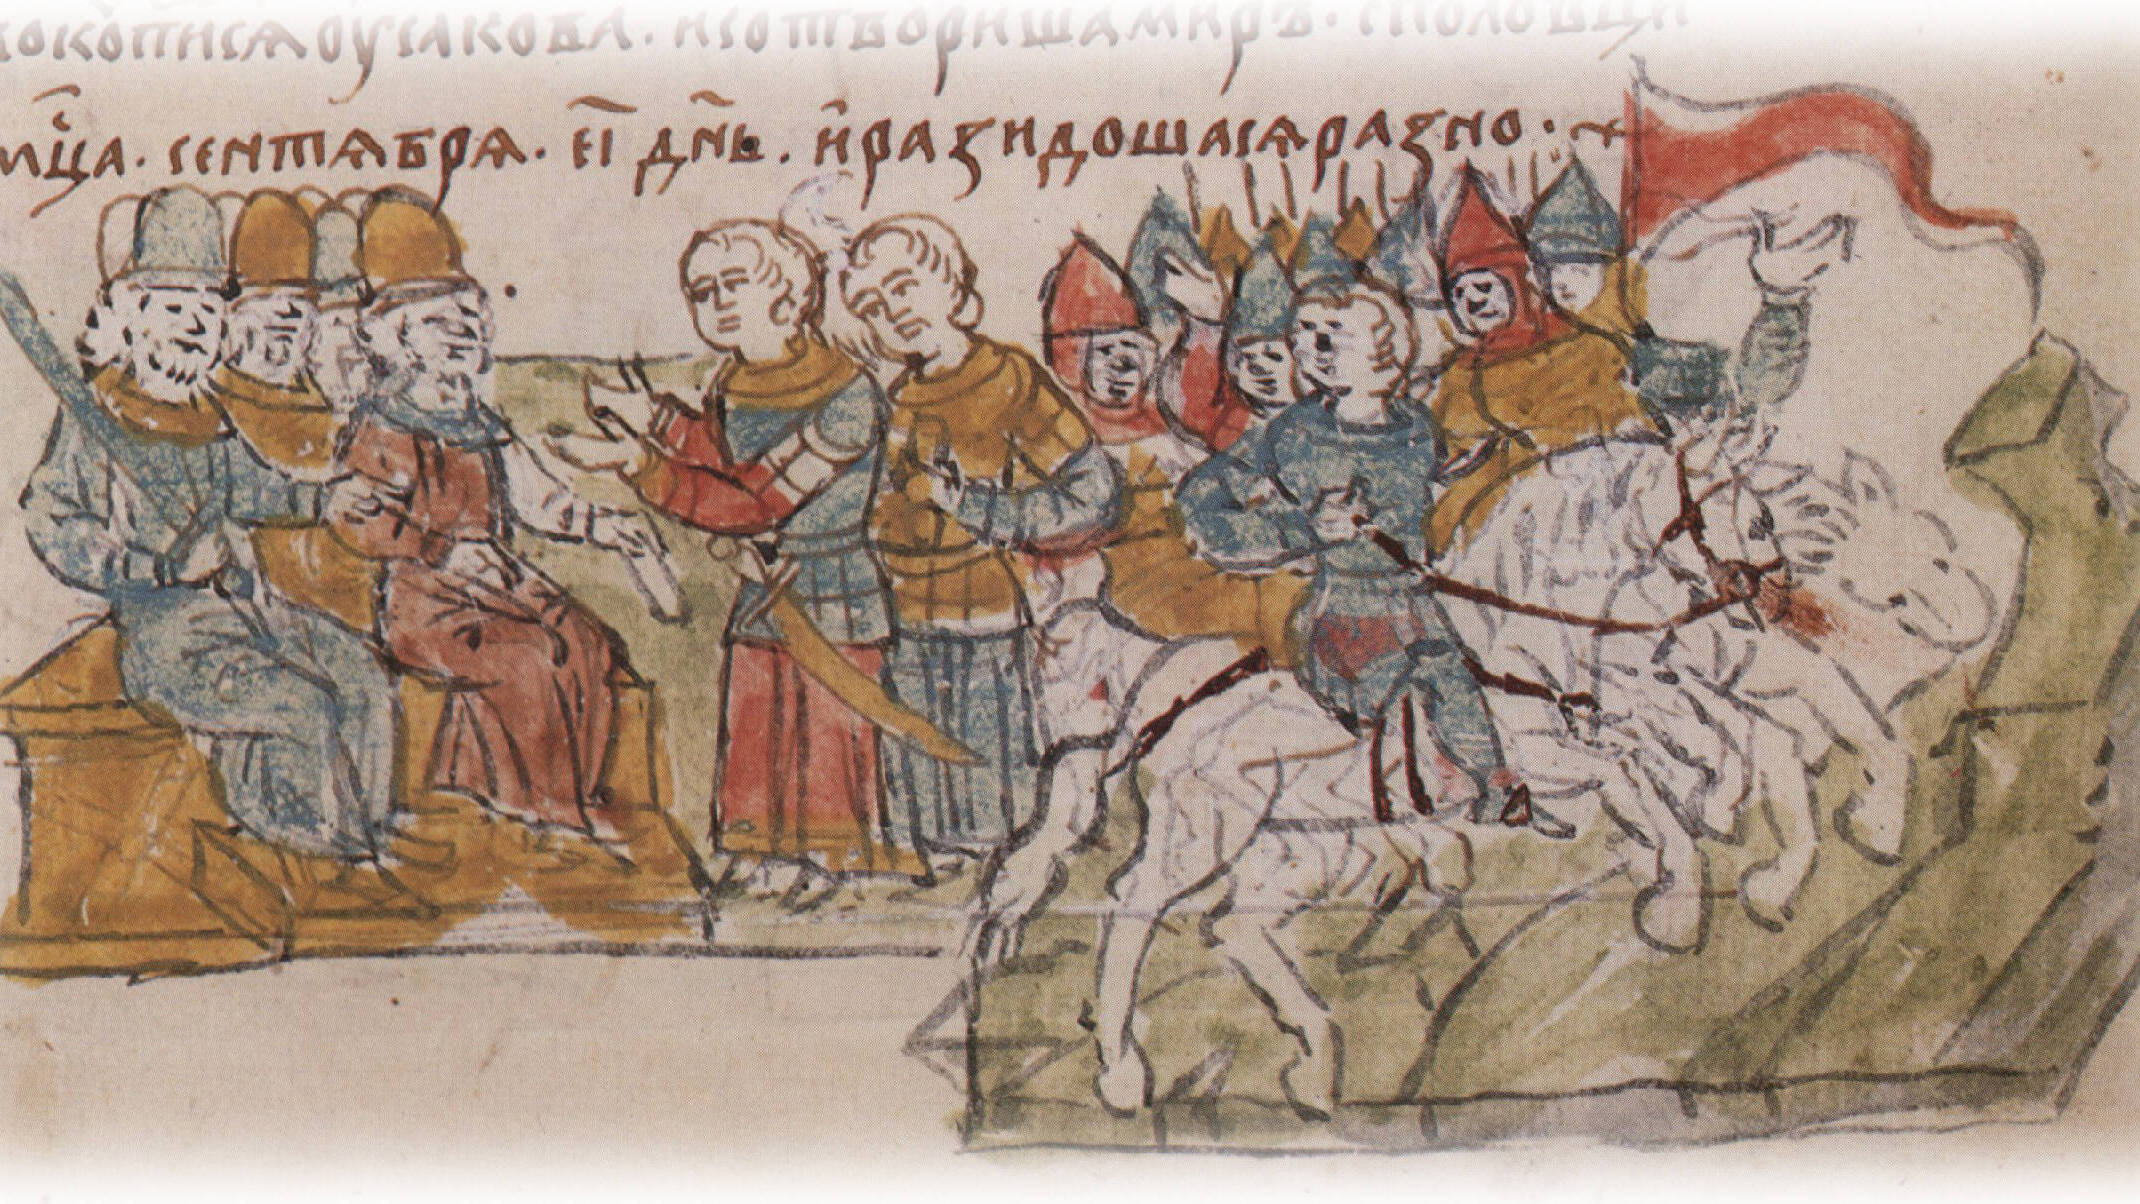 сокописѧ оу сакова · и сотвориша миръ · с половци
мц҃а · сентѧбрѧ · еі҃ дн҃ь · и разидошасѧ разно · ⁘